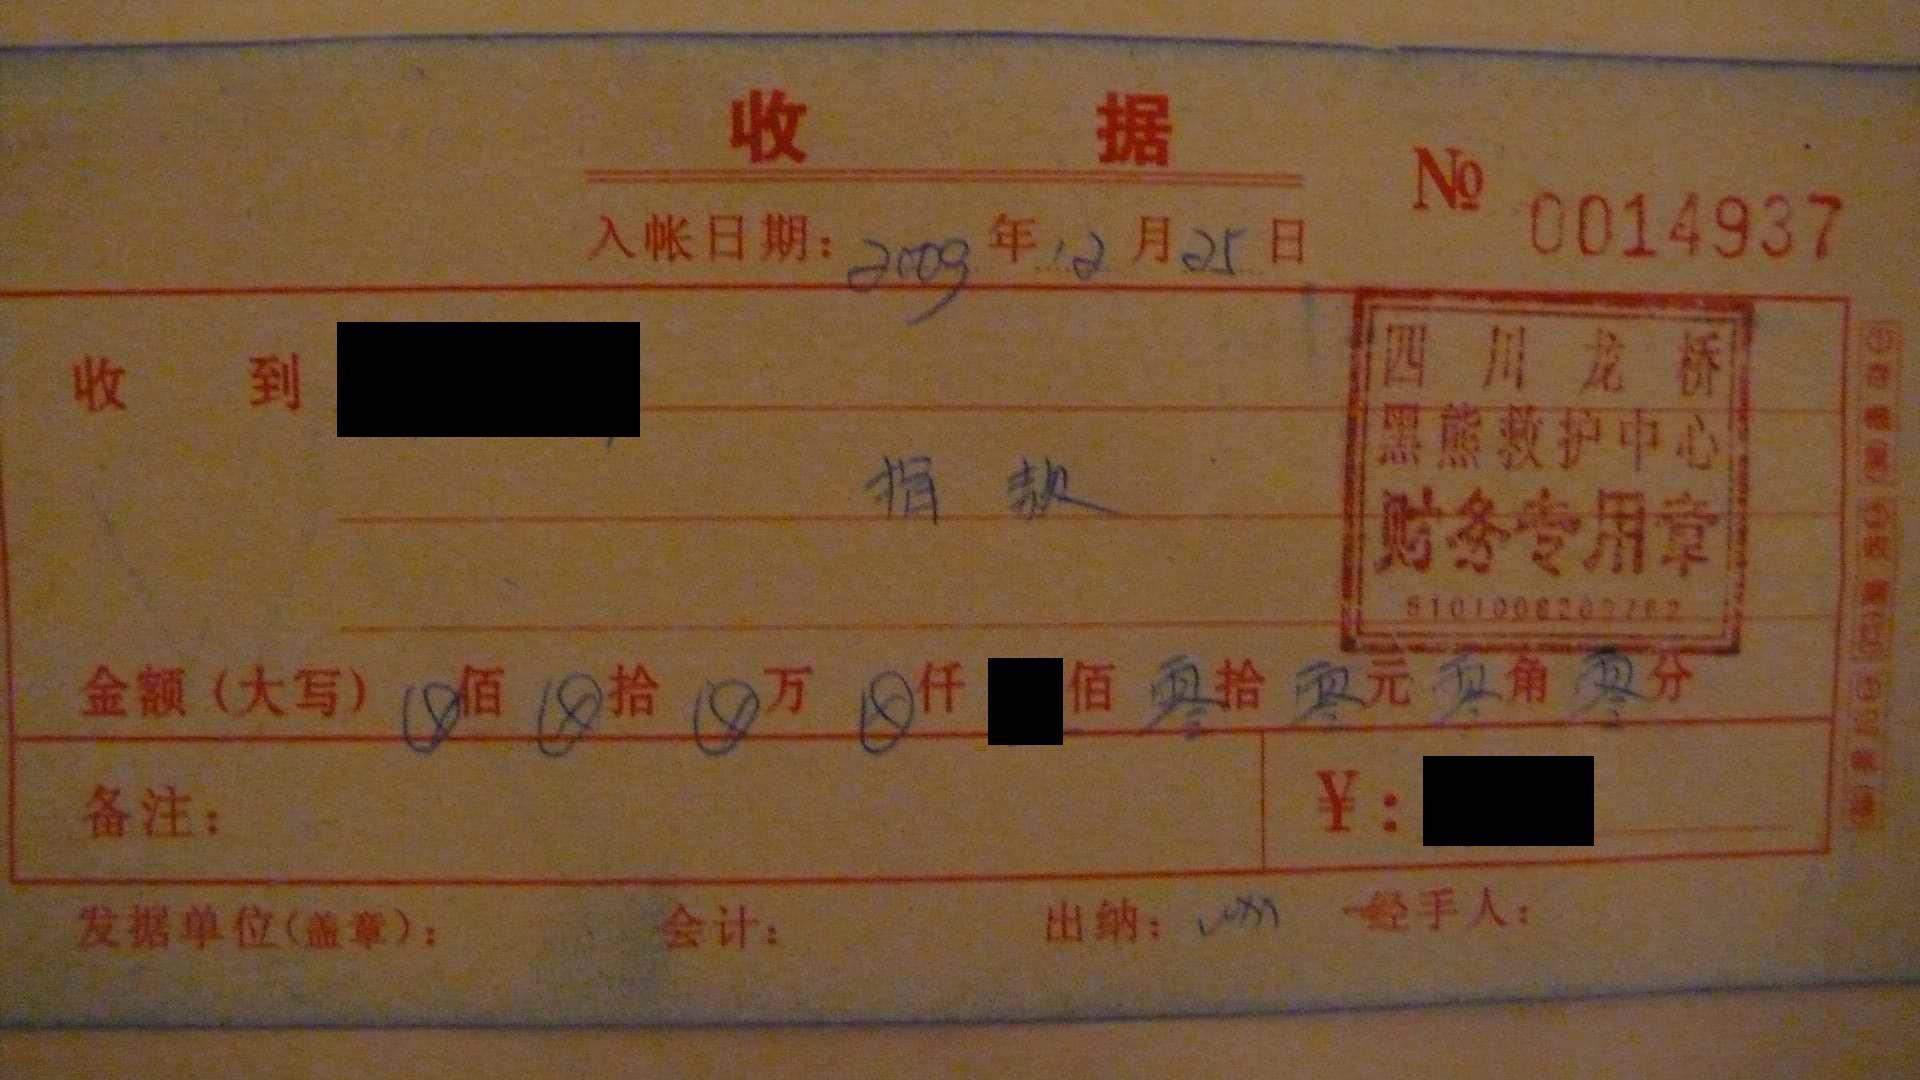 收 据
№ 0014937
入帐日期：2009年12月25日
收 到
捐 款
四川龙桥
黑熊救护中心
财务专用章
5101008202762
金额（大写） 佰 拾 万 仟 佰 零 拾 零 元 零 角 零 分
备注：
￥：
发据单位（盖章）： 会计： 出纳： 经手人：